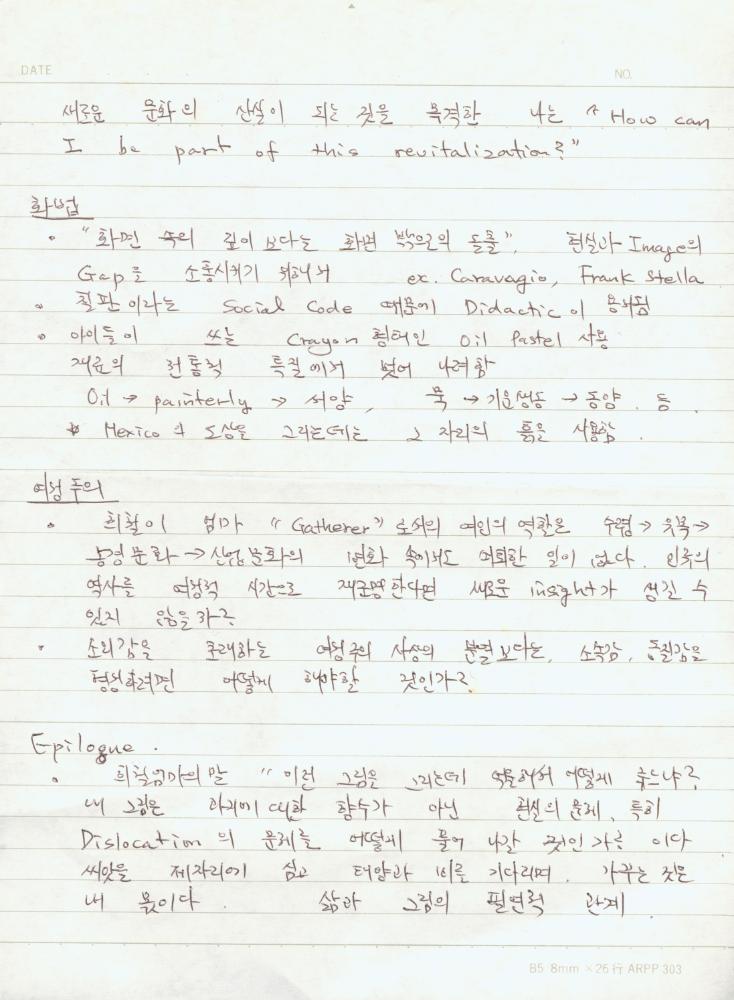 DATE
NO.
새로운 문화의 산실이 되는 것을 목격한 나는 "How can
I be part of this revitalization?"
화법
• "화면 속의 깊이 보다는 화면 밖으로의 돌출", 현실과 Image의
Gap을 소통시키기 위해서 ex. Caravagio, Frank Stella
• 칠판이라는 Social Code 때문에 Didactic이 용서됨
• 아이들이 쓰는 Crayon 형태인 Oil Pastel 사용
재료의 전통적 특질에서 벗어 나려함
Oil → painterly → 서양, 묵 → 기운생동 → 동양. 등.
• Mexico의 도상을 그리는데는 그 자리의 흙을 사용함.
여성주의
• 희철이 엄마 "Gatherer"로서의 여인의 역할은 수렵 → 유목 →
농경문화 → 산업문화의 변화 속에서도 변한 일이 없다. 인류의
역사를 여성적 시간으로 재조명한다면 새로운 insight가 생길 수
있지 않을까?
• 소외감을 초래하는 여성주의 사상의 분열보다는, 소속감, 동질감을
형성하려면 어떻게 해야할 것인가?
Epilogue.
• 희철엄마의 말 "이런 그림은 그리는데 어떻게 죽느냐?
내 그림은 과거에 대한 향수가 아닌 현실의 문제, 특히
Dislocation의 문제를 어떻게 풀어 나갈 것인가를 이다
씨앗을 제자리에 심고 태양과 비를 기다리며. 가꾸는 것은
내 몫이다. 삶과 그림의 필연적 관계
B5 8mm ×26行 ARPP 303